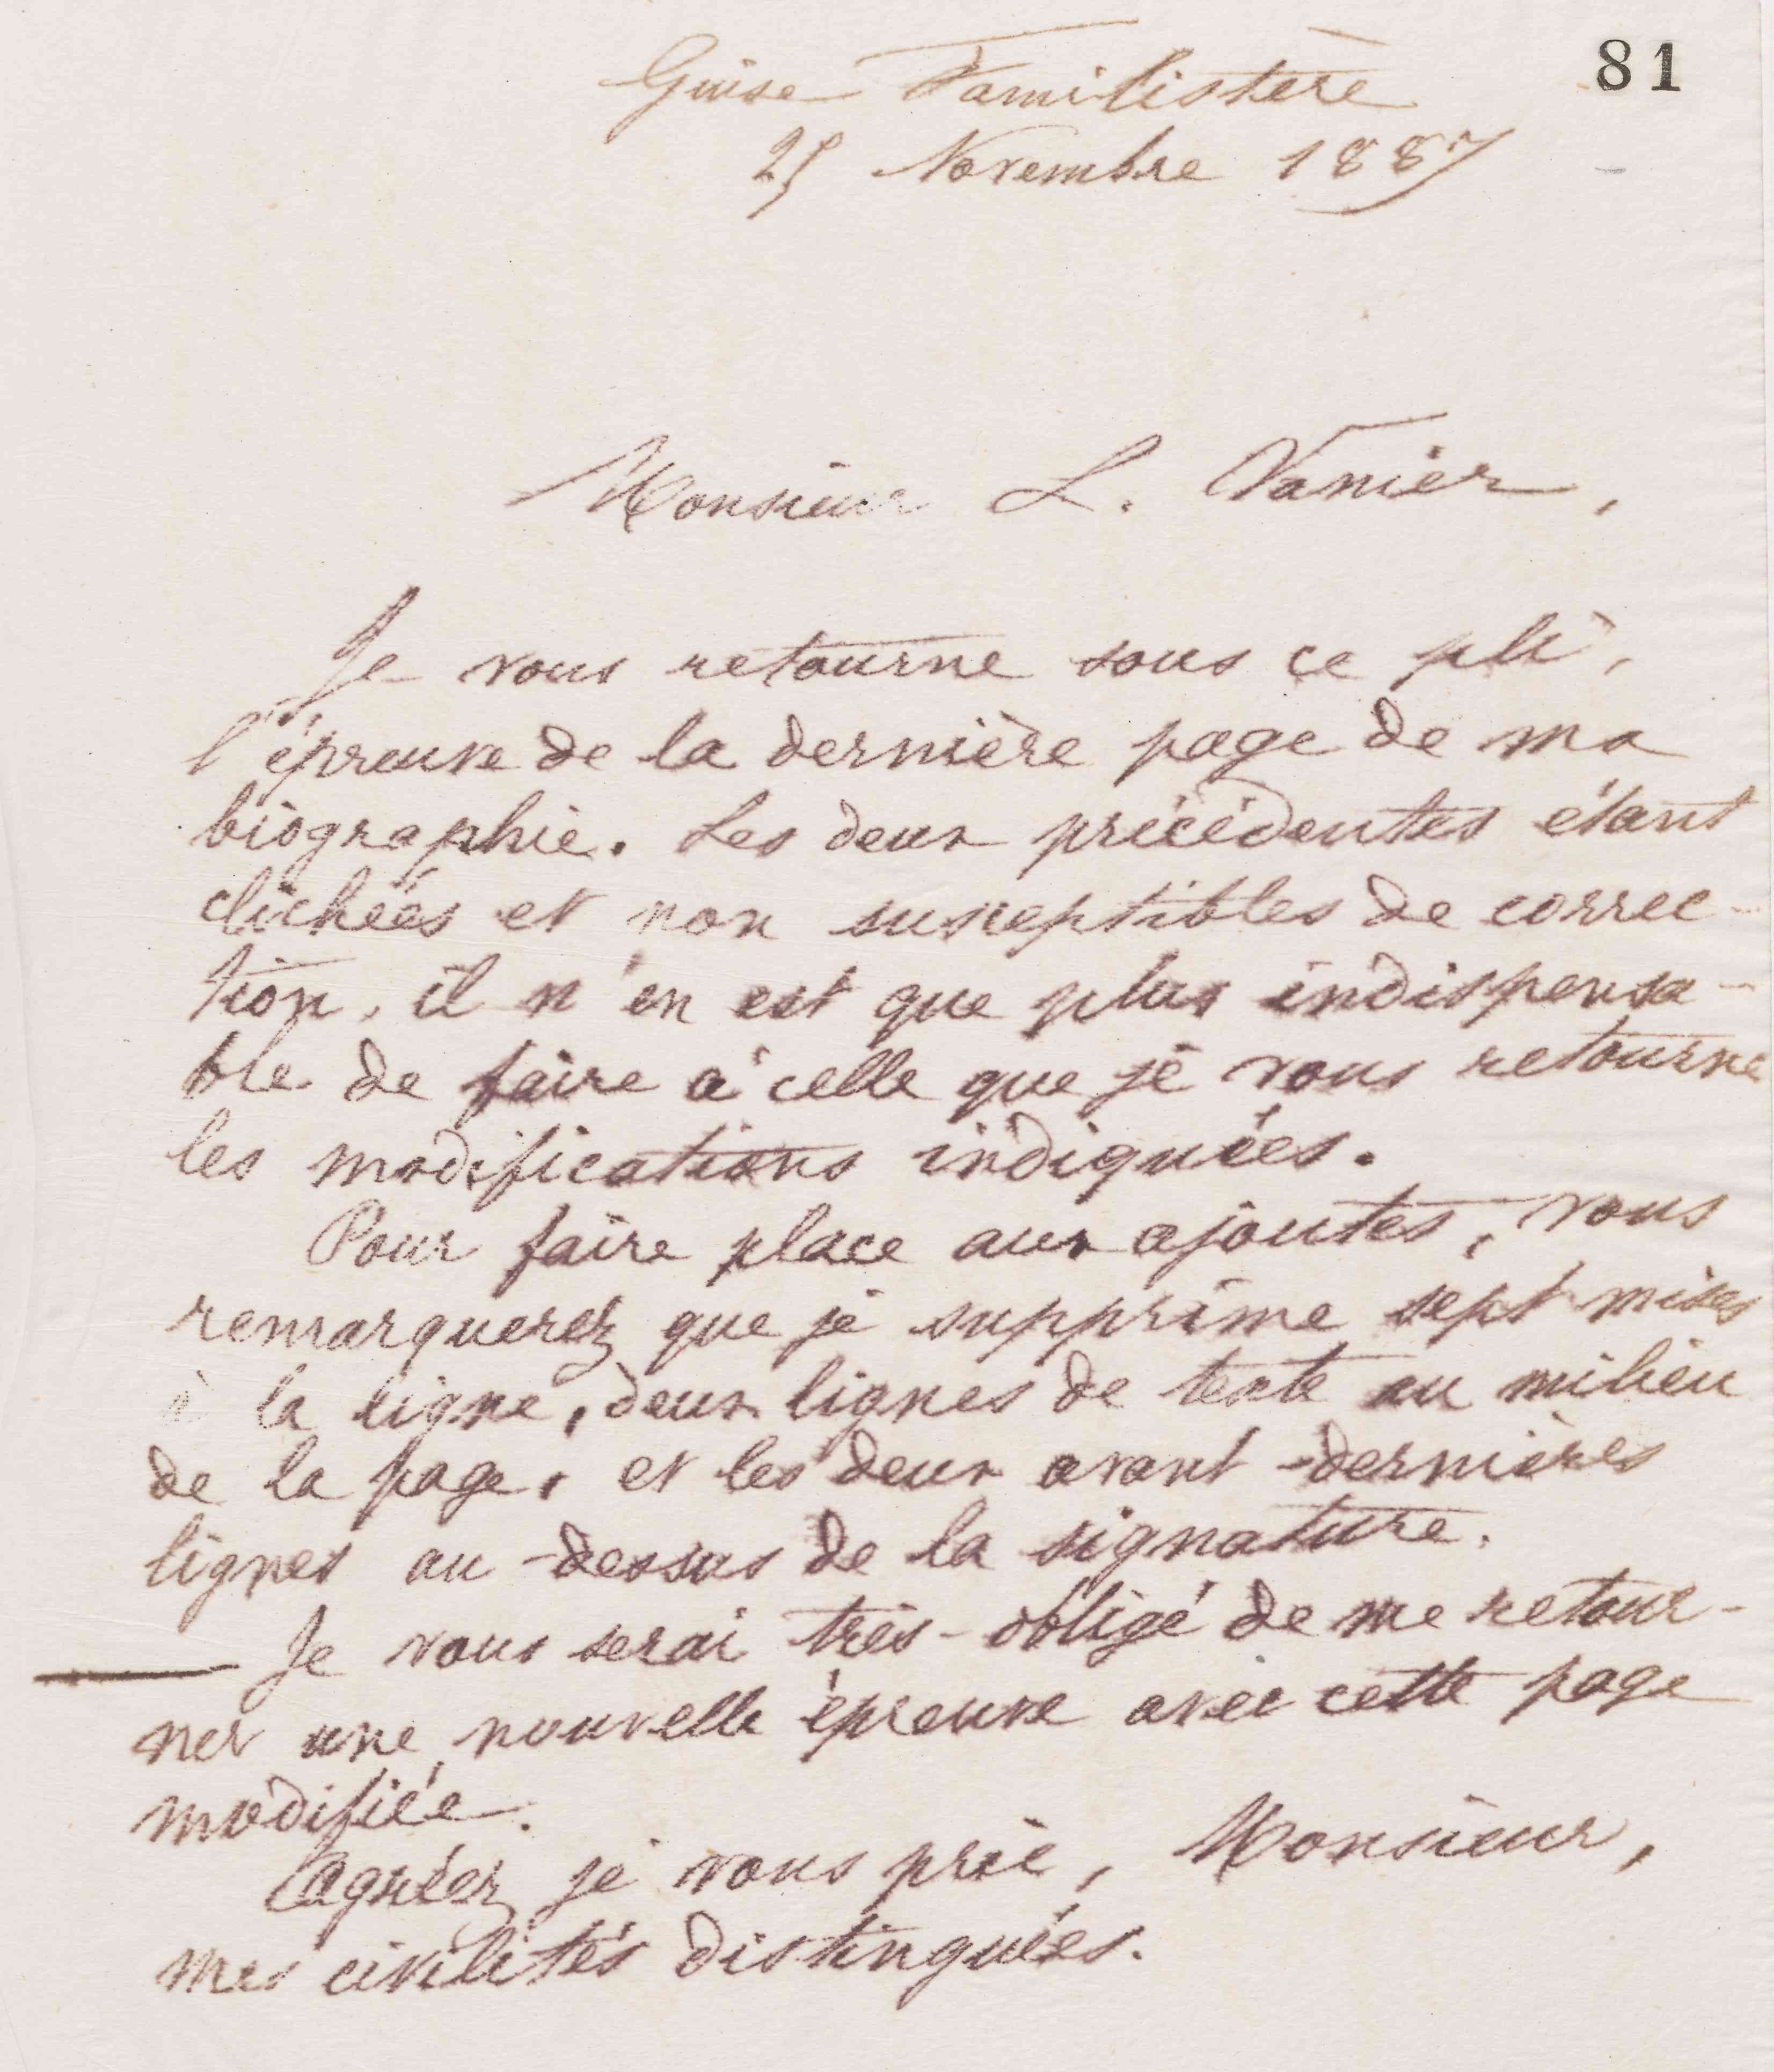 81
Guise Familistère
25 Novembre 1887
Monsieur L. Vanier,
Je vous retourne sous ce pli,
l'épreuve de la dernière page de ma
biographie. Les deux précédentes étant
clichées et non susceptibles de correc-
tion, il n'en est que plus indispensa-
ble de faire à celle que je vous retourne
les modifications indiquées.
Pour faire place aux ajoutés, vous
remarquerez que je supprime sept mises
à la ligne, deux lignes de texte au milieu
de la page, et les deux avant-dernières
lignes au-dessus de la signature.
Je vous serai très-obligé de me retour-
ner une nouvelle épreuve avec cette page
modifiée.
Agréez, je vous prie, Monsieur,
mes civilités distinguées.